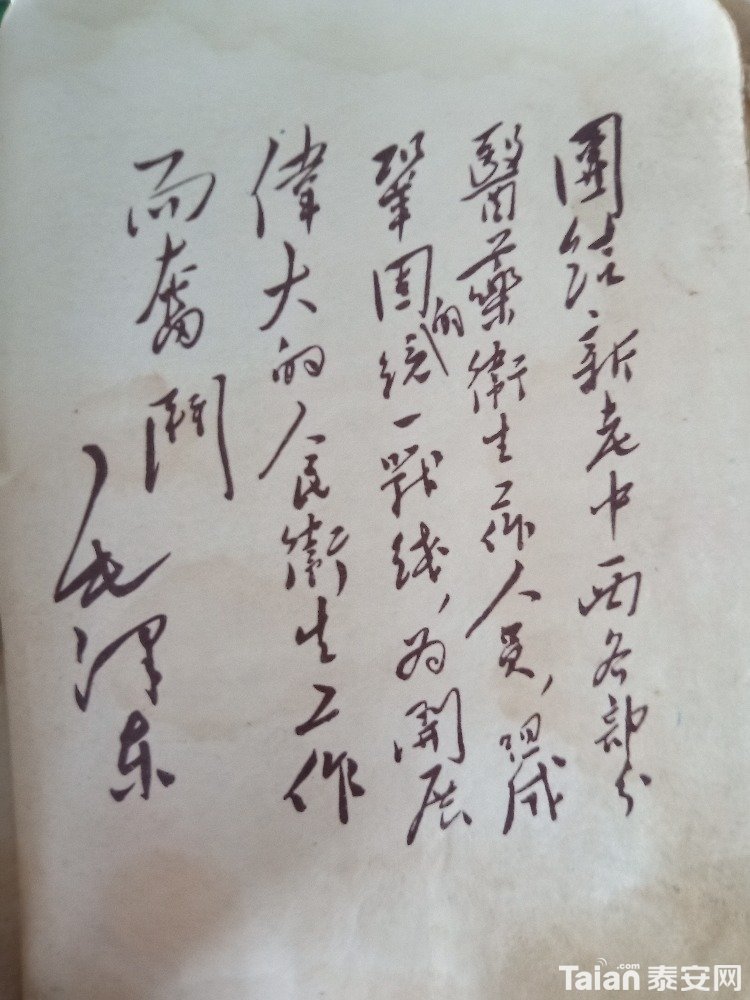 團结新老中西各部分
醫藥衛生工作人员，组成
鞏固的统一戰线，为開展
偉大的人民衛生工作
而奮鬥
毛泽东
Taian.com 泰安网